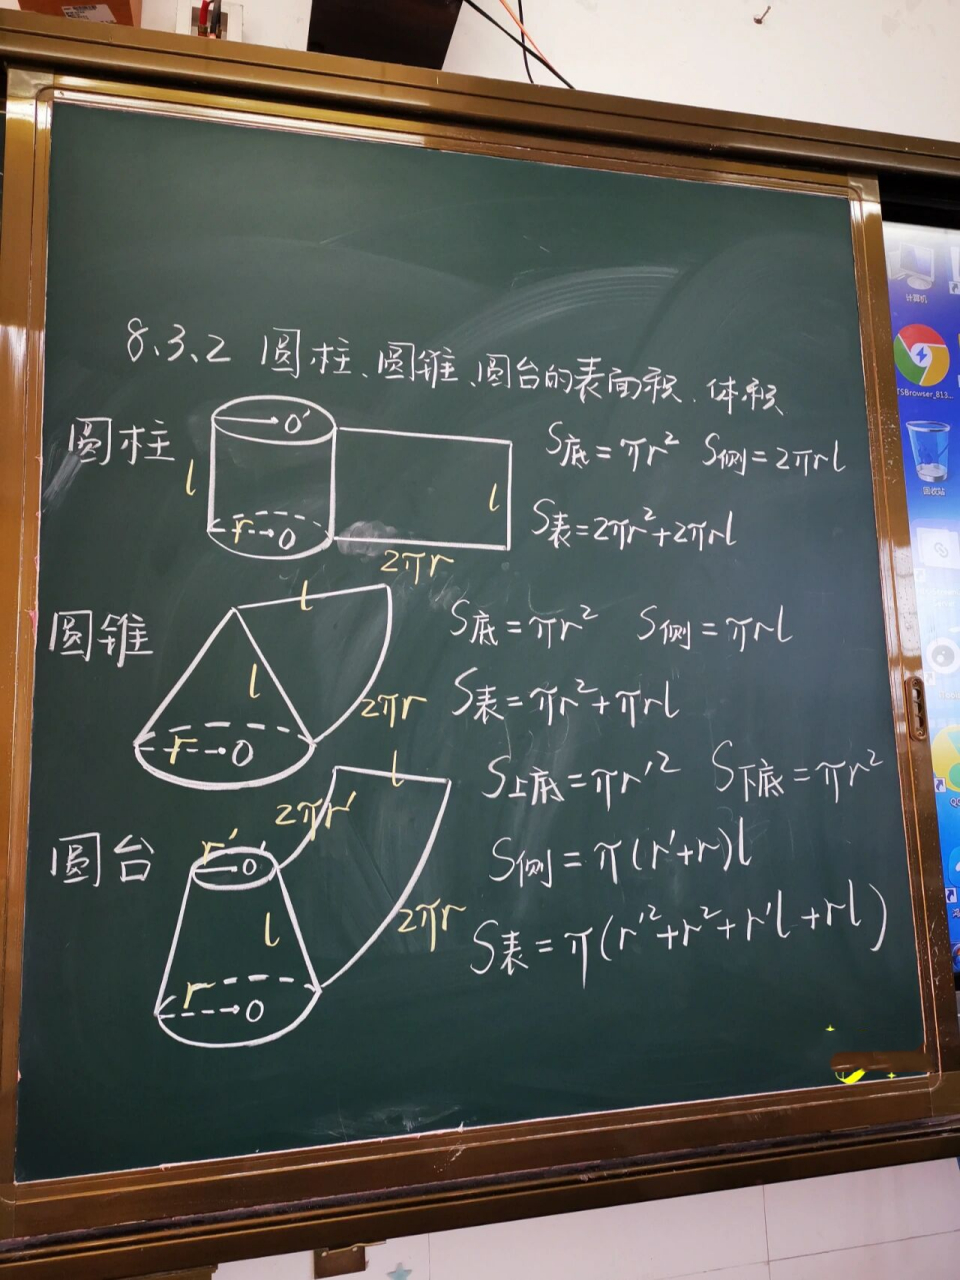 8.3.2 圆柱、圆锥、圆台的表面积、体积
圆柱
O′
l
r
O
l
2πr
S底=πr² S侧=2πrl
S表=2πr²+2πrl
圆锥
l
l
r
O
2πr
S底=πr² S侧=πrl
S表=πr²+πrl
圆台
r′
O′
2πr′
l
l
r
O
2πr
S上底=πr′² S下底=πr²
S侧=π(r′+r)l
S表=π(r′²+r²+r′l+rl)
计算机
TSBrowser_813...
回收站